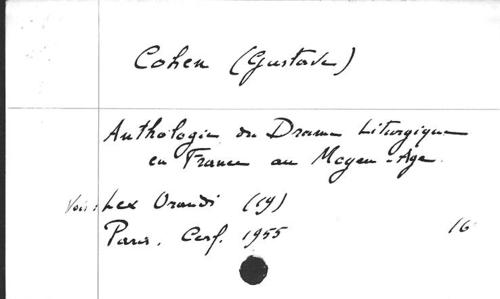 Cohen (Gustave)
Anthologie du Drame Liturgique
en France au Moyen-Age.
Voir: Lex Orandi (19)
Paris. Cerf. 1955 16